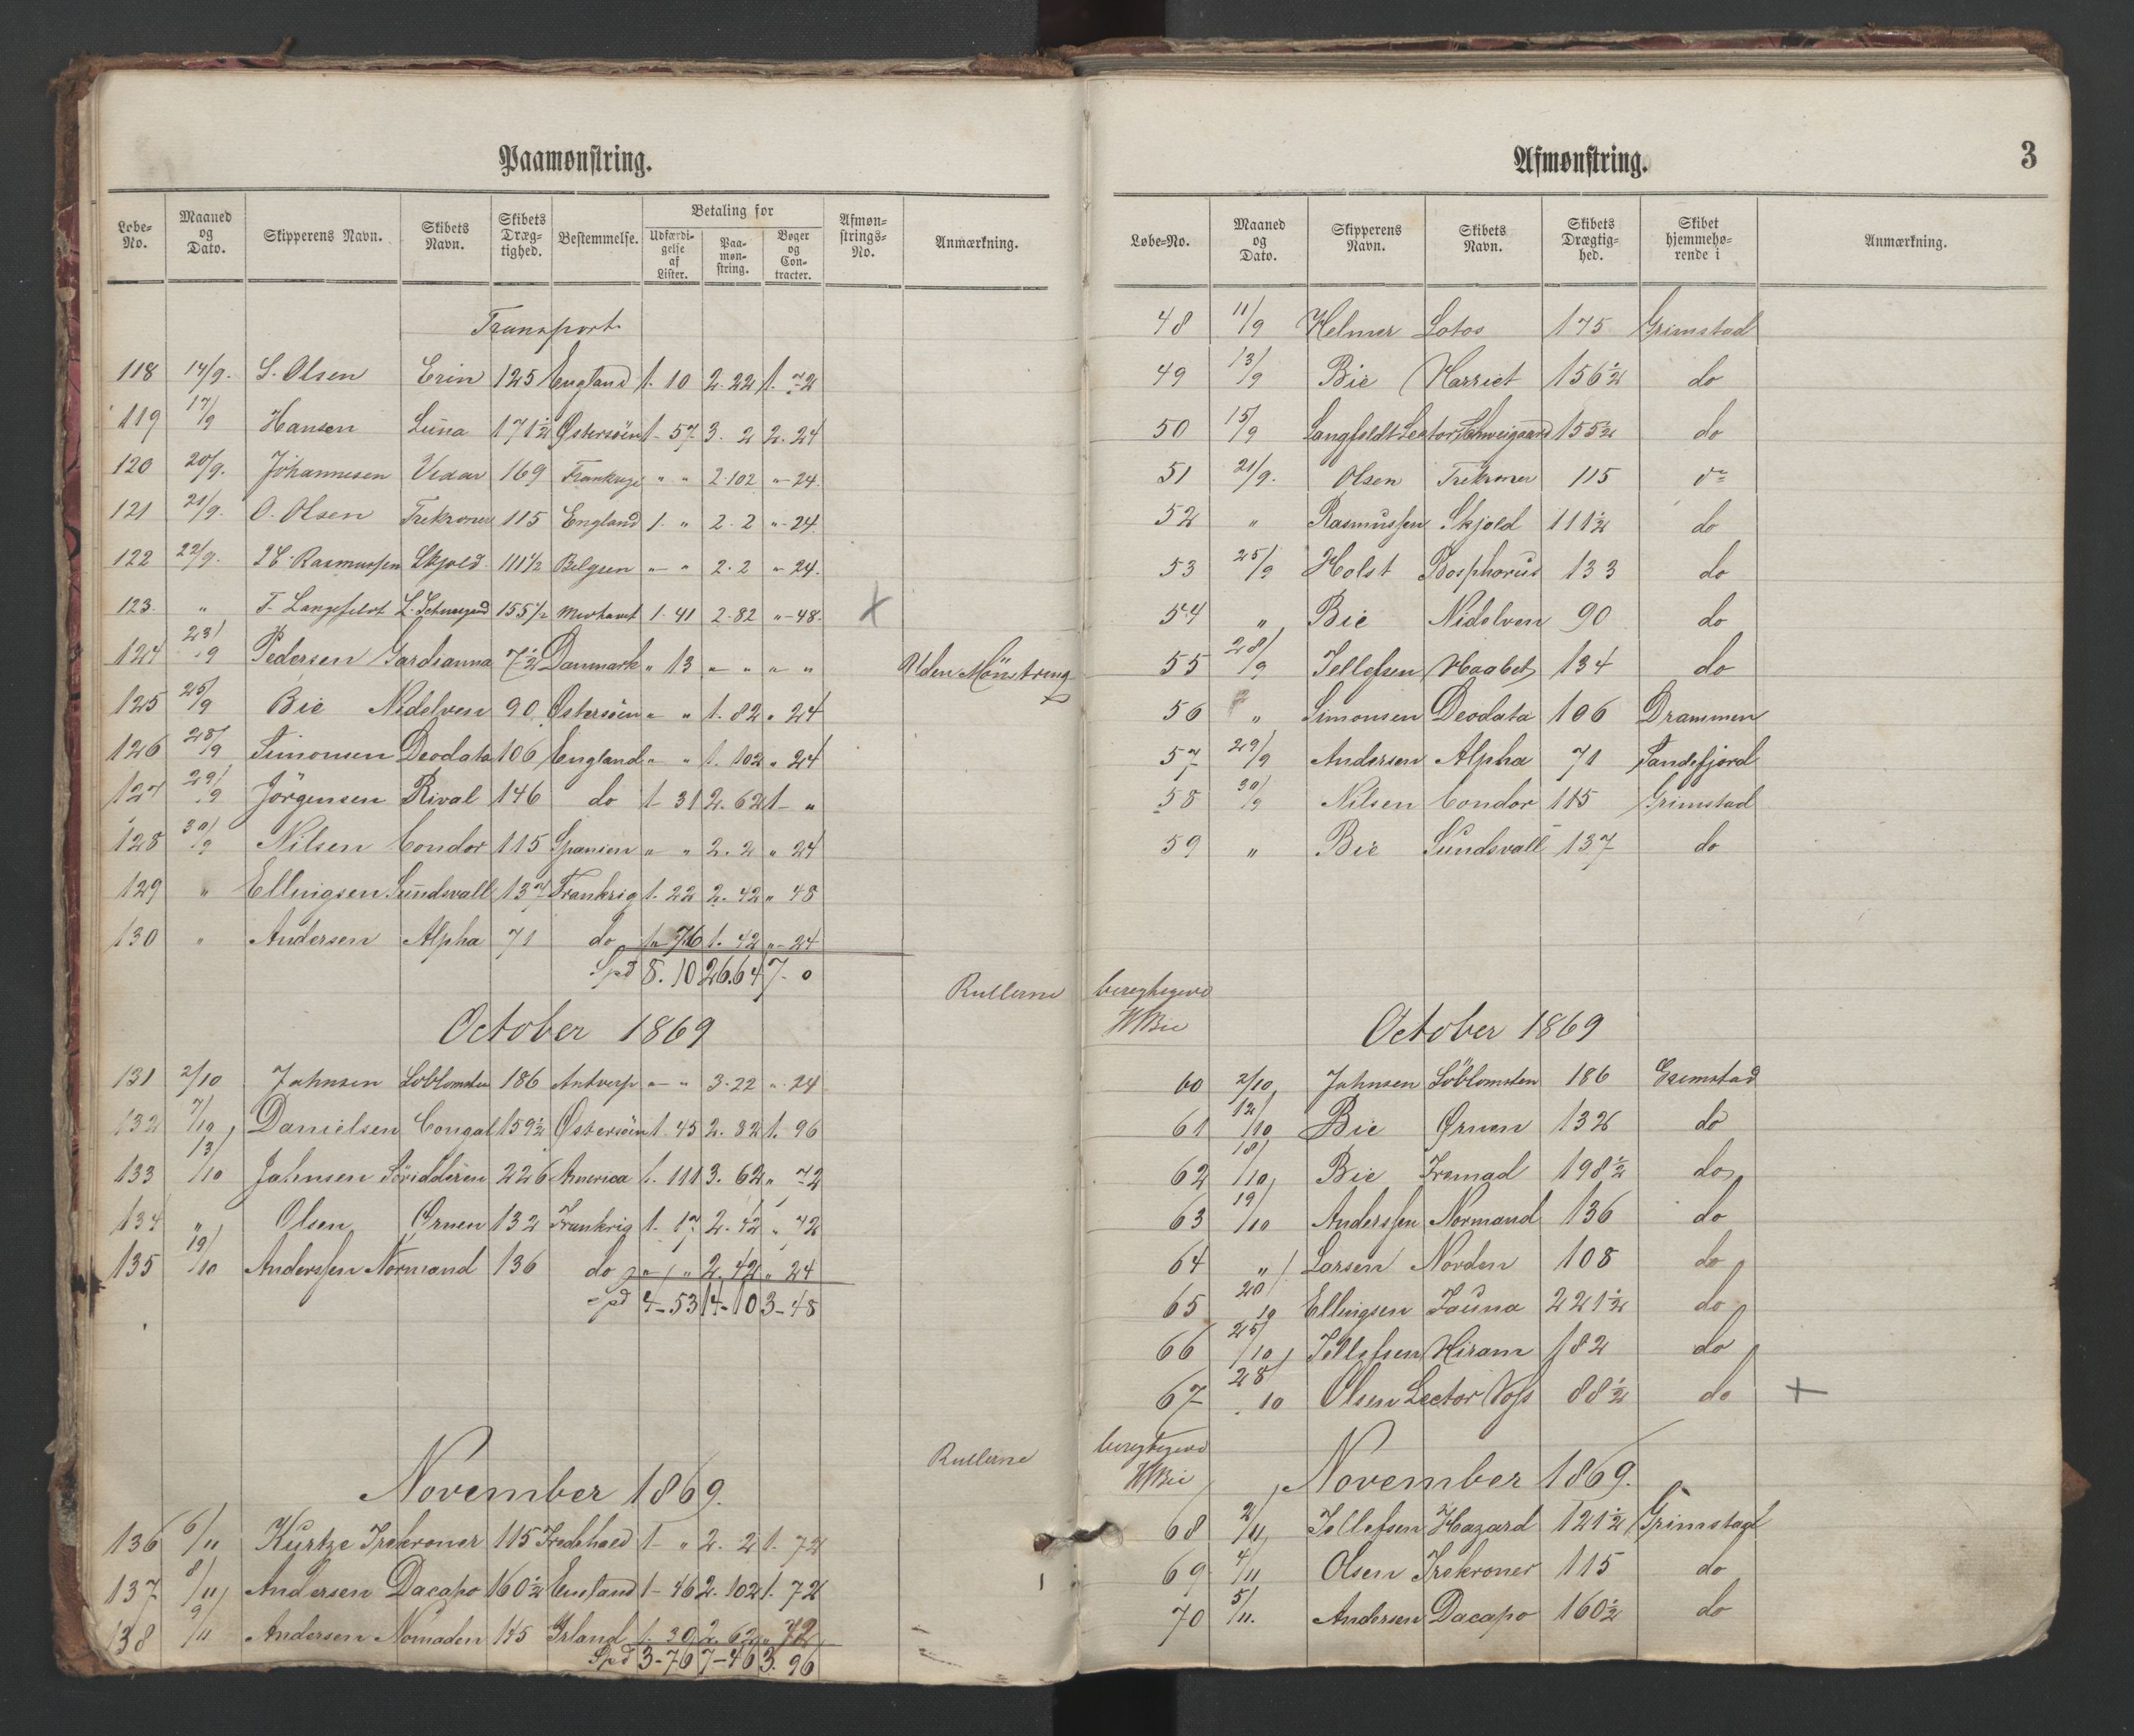 Paamønstring.
Løbe-No. Maaned og Dato. Skipperens Navn. Skibets Navn. Skibets Dræg-tighed. Bestemmelse. Betaling for Udfærdi-gelse af Lister. Paa-møn-string. Bøger og Con-tracter. Afmøn-strings-No. Anmærkning.
Transport
118 14/9. S. Olsen Erin 125 England 1. 10 2. 22 1. 72
119 17/9 Hansen Luna 171½ Østersöen 1- 57 3. 2 2. 24
120 20/9. Johannesen Vixar 169 Frankrige " " 2. 102 "- 24.
121 21/9. O. Olsen Trekroner 115 England 1. " 2. 2 "- 24.
122 22/9. Rasmussen Skjold 111½ Belgien "- " 2. 2 "- 24.
123. " T. Langefeldt L. Schweigaard 155½ 1. 41 2. 82 "- 48. X
124 23/9 Pedersen Gardianna 7½ Danmark " 13 " " " " Uden Mönstring
125 25/9 Bie Nidelven 90 Østersöen " " 1. 82 " 24
126 28/9 Simonsen Deodata 106 England " " 1. 102 " 24
127 29/9 Jörgensen Rival 146 do 1- 31 2. 62 1- "
128 30/9 Nilsen Condor 115 Spanien " " 2. 2 " 24
129 " Ellingsen Sundsvall 137 Frankrig 1. 22 2. 42 " 48
130 " Andersen Alpha 71 do " 76 1. 42 "- 24
Spd 8. 10 26. 64 7- 0
Rullerne
October 1869
131 2/10 Jahnsen Söblomsten 186 Antverp "- " 3- 22 " 24
132 7/10 Danielsen Congal 159½ Østersöen 1. 45 2. 82 1. 96
133 13/10 Jahnsen Söridderen 226 America 1. 111 3. 62 " 72
134 " Olsen Ørnen 132 Frankrig 1. 17 2. 42 " 72
135 19/10 Anderssen Normand 136 do " " 2. 42 " 24
Spd 4- 53 14- 10 3- 48
Rullerne
November 1869.
136 6/11 Kurtze Trekroner 115 Fredrhald 1- " 2. 2 1. 72
137 8/11 Andersen Dacapo 160½ England 1- 46 2. 102 1. 72
138 9/11 Andersen Nomaden 145 Irland 1. 30 2. 62 " 72
Spd 3- 76 7- 46 3. 96
Afmønstring.
3
Løbe-No. Maaned og Dato. Skipperens Navn. Skibets Navn. Skibets Drægtig-hed. Skibet hjemmehø-rende i Anmærkning.
48 11/9 Helmer Lotos 175 Grimstad
49 13/9 Bie Harriet 156½ do
50 15/9 Langfeldt Lector Schweigaard 155½ do
51 21/9. Olsen Trekroner 115 do
52 " Rasmussen Skjold 111½ do
53 25/9 Holst Bosphorus 133 do
54 " Bie Nidelven 90 do
55 28/9 Tellefsen Haabet 134 do
56 " Simonsen Deodata 106 Drammen
57 29/9 Andersen Alpha 71 Sandefjord
58 30/9 Nilsen Condor 115 Grimstad
59 " Bie Sundsvall 137 do
HBie
October 1869
60 2/10 Jahnsen Söblomsten 186 Grimstad
61 12/10 Bie Ørnen 132 do
62 18/10 Bie Fremad 198½ do
63 19/10 Anderssen Normand 136 do
64 " Larsen Norden 108 do
65 20/10 Ellingsen Fauna 221½ do
66 25/10 Tellefsen Hiram 182 do
67 28/10 Olsen Lector Voss 88½ do +
HBie
November 1869.
68 2/11 Tellefsen Hazard 121½ Grimstad
69 4/11 Olsen Trekroner 115 do
70 5/11. Andersen Dacapo 160½ do